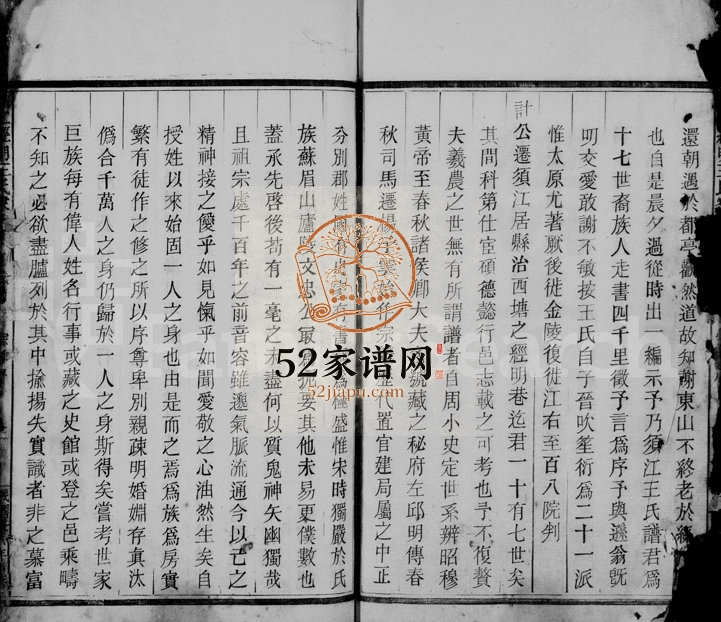 還朝遇於都亭歡然道故知謝東山不終老於
也自是晨夕過從時出一編示予乃須江王氏譜君爲
十七世裔族人走書四千里徵予言爲序予與遜翁旣
叨交愛敢謝不敏按王氏自子晉吹笙衍爲二十一派
惟太原尤著厥後徙金陵復徙江右至百八院判
計
公遷須江居縣治西塘之經明巷迄君一十有七世矣
其間科第仕宦碩德懿行邑志載之可考也予不復贅
夫羲農之世無有所謂譜者自周小史定世系辨昭穆
黃帝至春秋諸侯卿大夫號藏之秘府左邱明傳春
秋司馬遷楊子雲始作宗歷代置官建局屬之中正
分別郡姓極盛惟宋時獨嚴於氏
族蘇眉山廬陵文忠公最要其他未易更僕數也
蓋承先啓後苟有一毫之未盡何以質鬼神矢幽獨哉
且祖宗處千百年之前音容雖邈氣脈流通今以己之
精神接之僾乎如見愾乎如聞愛敬之心油然生矣自
授姓以來始固一人之身也由是而之焉爲族爲房實
繁有徒作之修之所以序尊卑別親疎明婚姻存真汰
僞合千萬人之身仍歸於一人之身斯得矣嘗考世家
巨族每有偉人姓名行事或藏之史館或登之邑乘疇
不知之必欲盡臚列於其中揄揚失實識者非之慕富
52家谱网
52jiapu.com